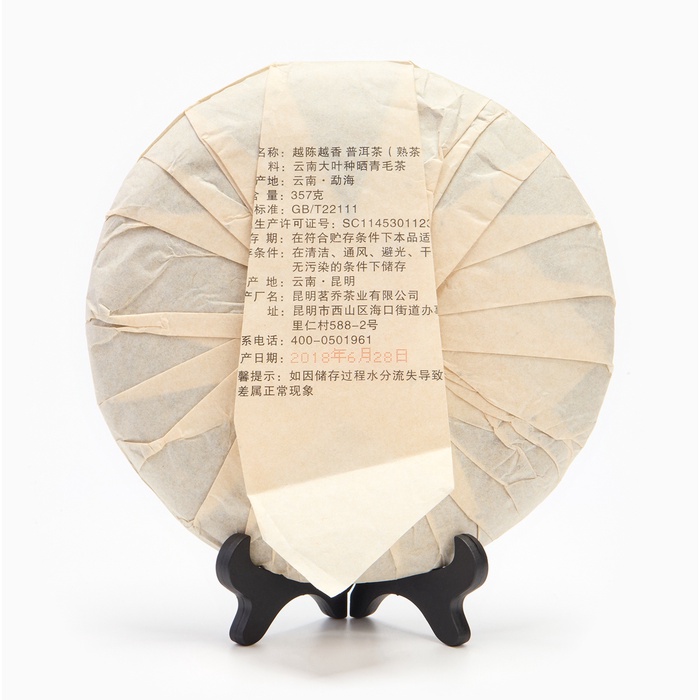 名称：越陈越香 普洱茶（熟茶
料：云南大叶种晒青毛茶
产地：云南·勐海
含 量：357克
标准：GB/T22111
生产许可证号：SC1145301123
存 期：在符合贮存条件下本品适
条件：在清洁、通风、避光、干
无污染的条件下储存
产 地：云南·昆明
产厂名：昆明茗乔茶业有限公司
址：昆明市西山区海口街道办
里仁村588-2号
系电话：400-0501961
产日期：2018年6月28日
馨提示：如因储存过程水分流失导致
差属正常现象